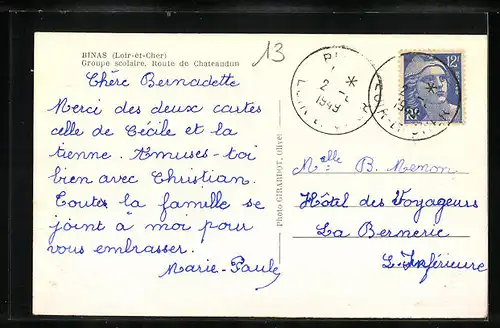 BINAS (Loir-et-Cher)
Groupe scolaire. Route de Chateaudun
13
Chère Bernadette
Merci des deux cartes
celle de Cécile et la
tienne. Amuses-toi
bien avec Christian.
Toute la famille se
joint à moi pour
vous embrasser.
Marie-Paule
Photo GIRARDOT, (Olivet)
12f
2
1949
Melle B. Menon
Hôtel des Voyageurs
La Bernerie
L-Inférieure